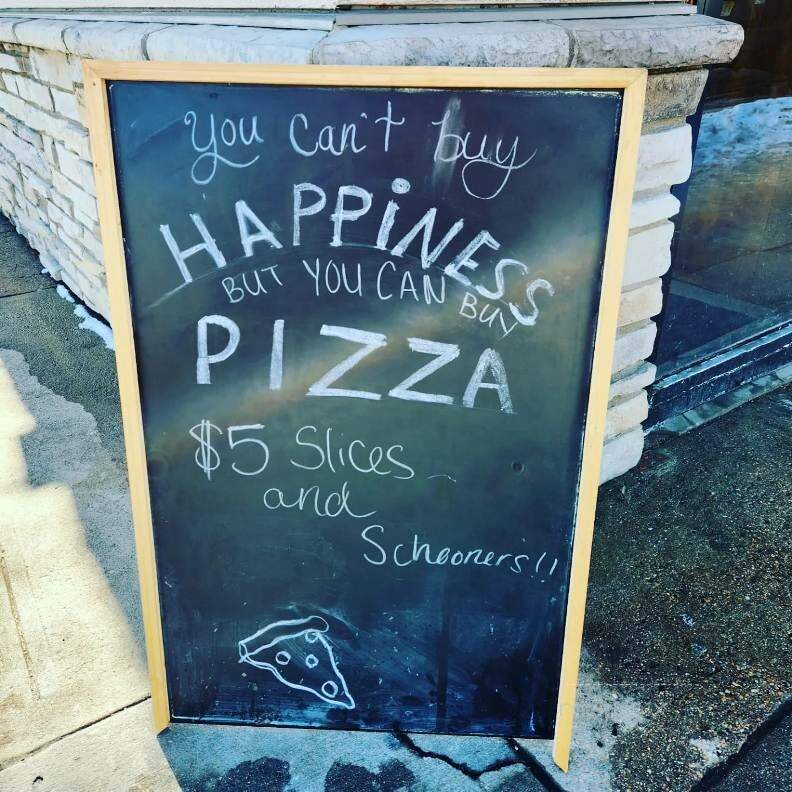 You Can't buy
HAPPiNESS
BUT YOU CAN BUY
PIZZA
$5 Slices
and
Schooners!!